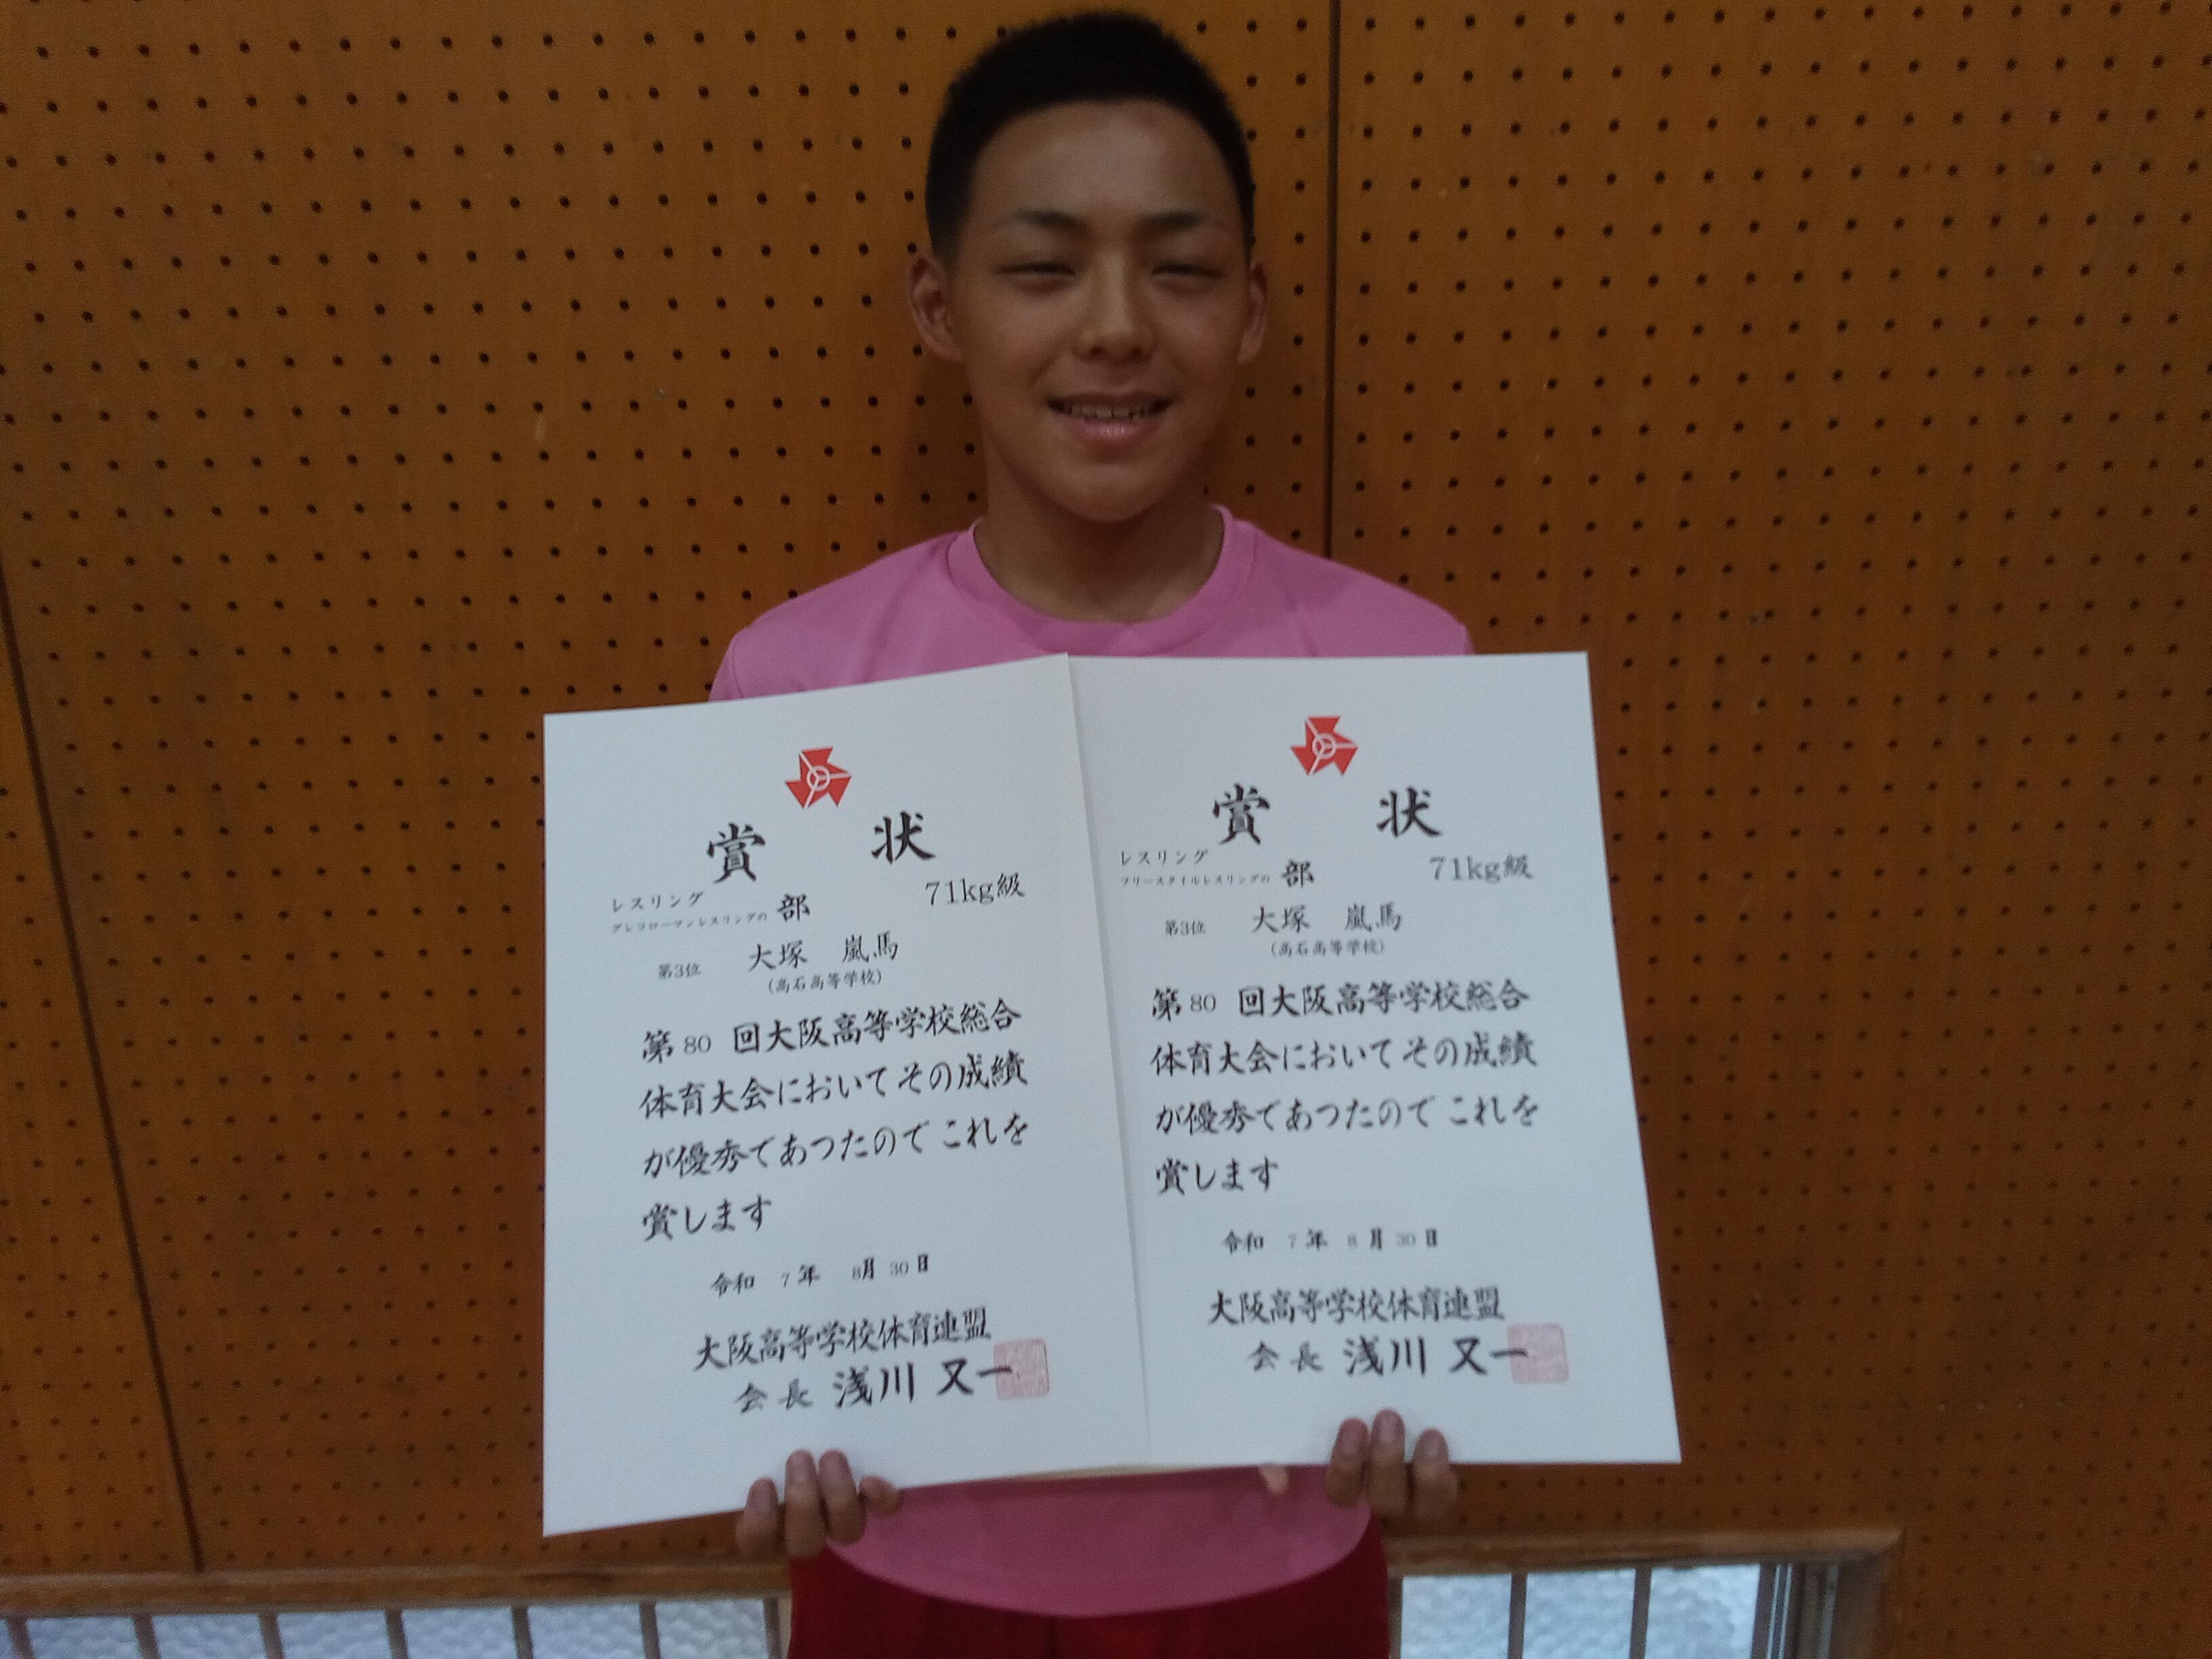 賞状
レスリング
グレコローマンレスリングの 部 71kg級
第3位 大塚 嵐馬
(高石高等学校)
第80回大阪高等学校総合
体育大会においてその成績
が優秀であつたのでこれを
賞します
令和 7年 8月 30日
大阪高等学校体育連盟
会長 浅川 又一
賞状
レスリング
フリースタイルレスリングの 部 71kg級
第3位 大塚 嵐馬
(高石高等学校)
第80回大阪高等学校総合
体育大会においてその成績
が優秀であつたのでこれを
賞します
令和 7年 8月 30日
大阪高等学校体育連盟
会長 浅川 又一